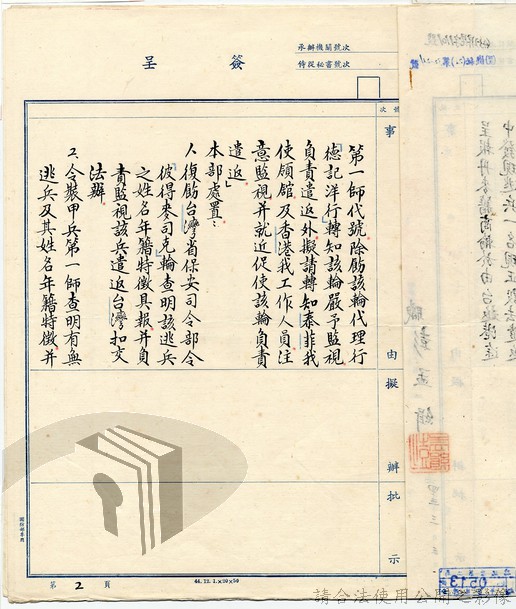 簽呈
承辦機關號次
侍從秘書號次
號次
事由
擬辦
批示
第一師代號除勵該輪代理行
「德記洋行」轉知該輪嚴予監視
負責遣返外擬請轉知泰菲我
使領館及香港我工作人員注
意監視并就近促使該輪負責
遣返」
本部處置：
1.復飭台灣省保安司令部令
「彼得麥司克」輪查明該逃兵
之姓名年籍特徵具報并負
責監視該兵遣返台灣扣交
法辦
2.令裝甲兵第一師查明有無
逃兵及其姓名年籍特徵并
第2頁
44.12.1.×90×50
職彭孟緝
0513
請合法使用公開之影像